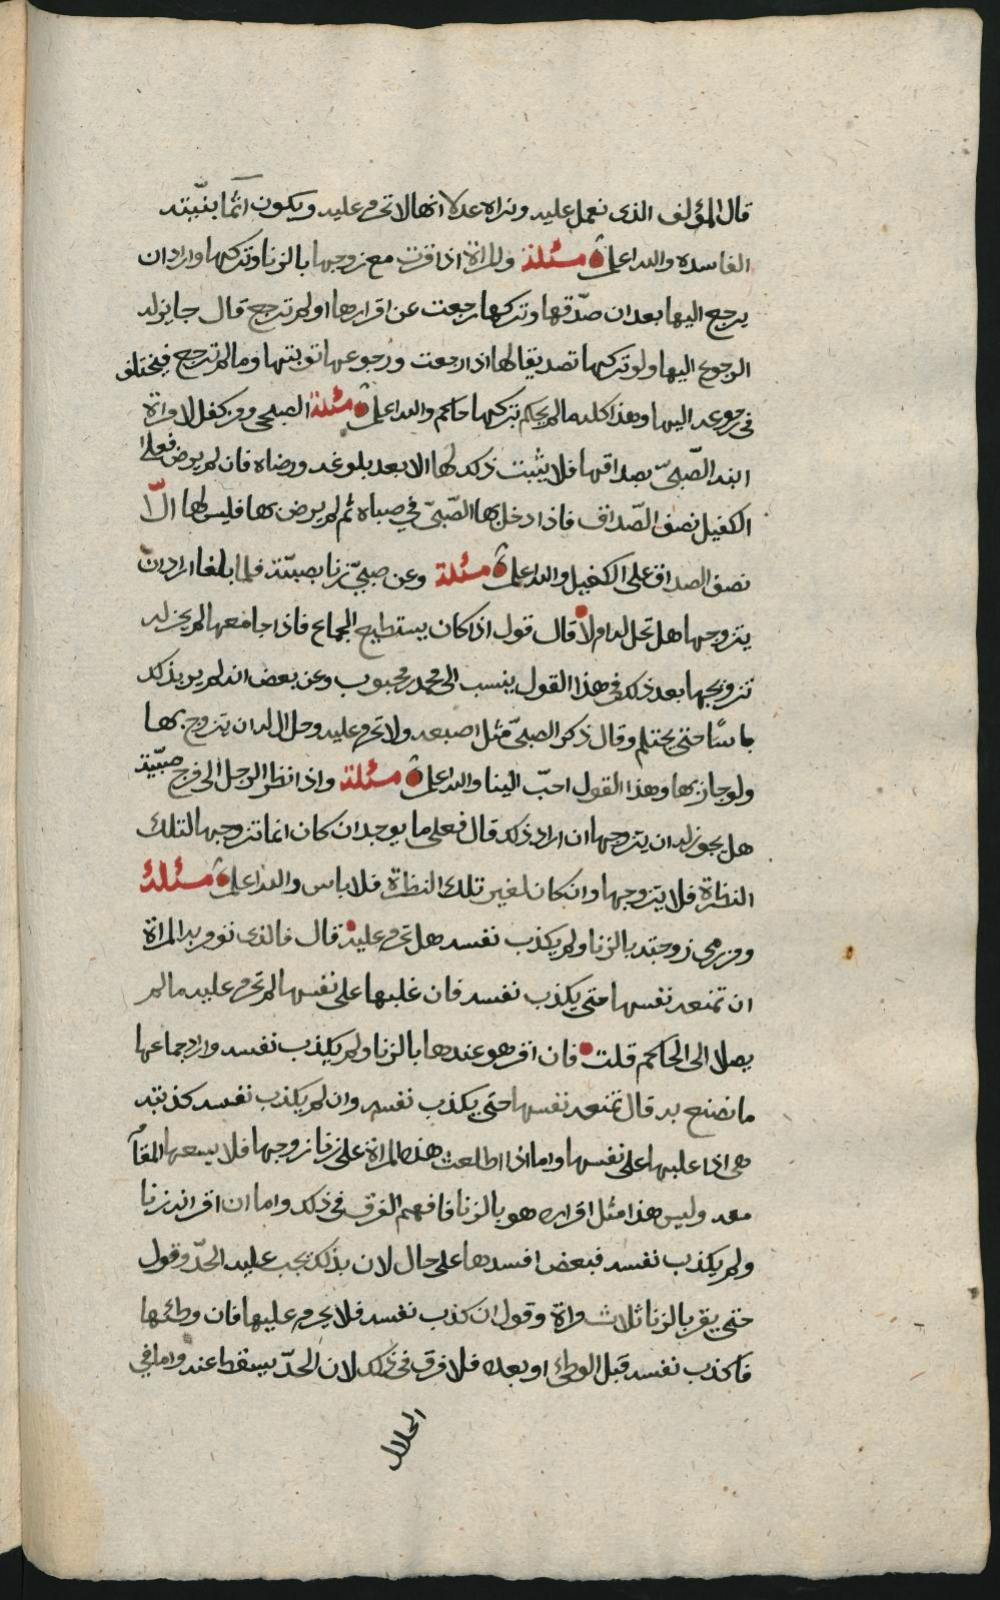 قال المؤلف الذى نعمل عليه ونراه عدلا انها لا تحرم عليه ويكون اثما بنيته
الفاسده والله اعلم مسئلة والمراة اذا قرت مع زوجها بالزنا وتركها واراد ان
يرجع اليها بعد ان صدّقها وتركها رجعت عن اقرارها او لم ترجع قال جايز له
الرجوع اليها ولو تركها تصديقا لها اذا رجعت ورجوعها توبتها وما لم ترجع فيختلف
فى رجوعه اليها وهذا كله ما لم يحكم بتركها حاكم والله اعلم مسئلة الصبحى ومن كفل لامراة
ابنه الصّبىّ بصداقها فلا يثبت ذلك لها الا بعد بلوغه ورضاه فان لم يرض فعلى
الكفيل نصف الصّداق فاذا دخل بها الصّبىّ في صباه ثم لم يرض بها فليس لها الّا
نصف الصداق على الكفيل والله اعلم مسئلة وعن صبىّ زنا بصبيّة فلما بلغا اراد ان
يتزوجها هل تحل له ام لا قال قول اذا كان يستطيع الجماع فاذا جامعها لم يجز له
تزويجها بعد ذلك فى هذا القول ينسب الى محمد بن محبوب وعن بعض انه لم ير بذلك
باسًا حتى يحتلم وقال ذكر الصبىّ مثل اصبعه ولا تحرم عليه وحلال له ان يتزوج بها
ولو جاز بها وهذا القول احبّ الينا والله اعلم مسئلة واذا نظر الرجل الى فرج صبيّة
هل يجوز له ان يتزوجها ان اراد ذلك قال فعلى ما يوجد ان كان انما تزوجها لتلك
النظرة فلا يتزوجها وان كان لغير تلك النظرة فلا باس والله اعلم مسئلة
ومن رمى زوجته بالزنا ولم يكذب نفسه هل تحرم عليه قال فالذى نومر به المراة
ان تمنعه نفسها حتى يكذب نفسه فان غلبها على نفسها لم تحرم عليه ما لم
يصلا الى الحاكم قلت فان اقر هو عندها بالزنا ولم يكذب نفسه واراد جماعها
ما تصنع به قال تمنعه نفسها حتى يكذب نفسه وان لم يكذب نفسه كذبته
هى اذا غلبها على نفسها واما اذا اطلعت هذه المراة على زنا زوجها فلا يسعها المقام
معه وليس هذا مثل اقراره هو بالزنا فافهم الفرق فى ذلك واما ان اقر انه زنا
ولم يكذب نفسه فبعض افسدها على حال لان بذلك يجب عليه الحدّ وقول
حتى يقر بالزنا ثلاث مراة وقول ان كذب نفسه فلا يحرم عليها فان وطئها
فاكذب نفسه قبل الوطئ او بعده فلا فرق فى ذلك لان الحدّ يسقط عنه واما في
الحلال